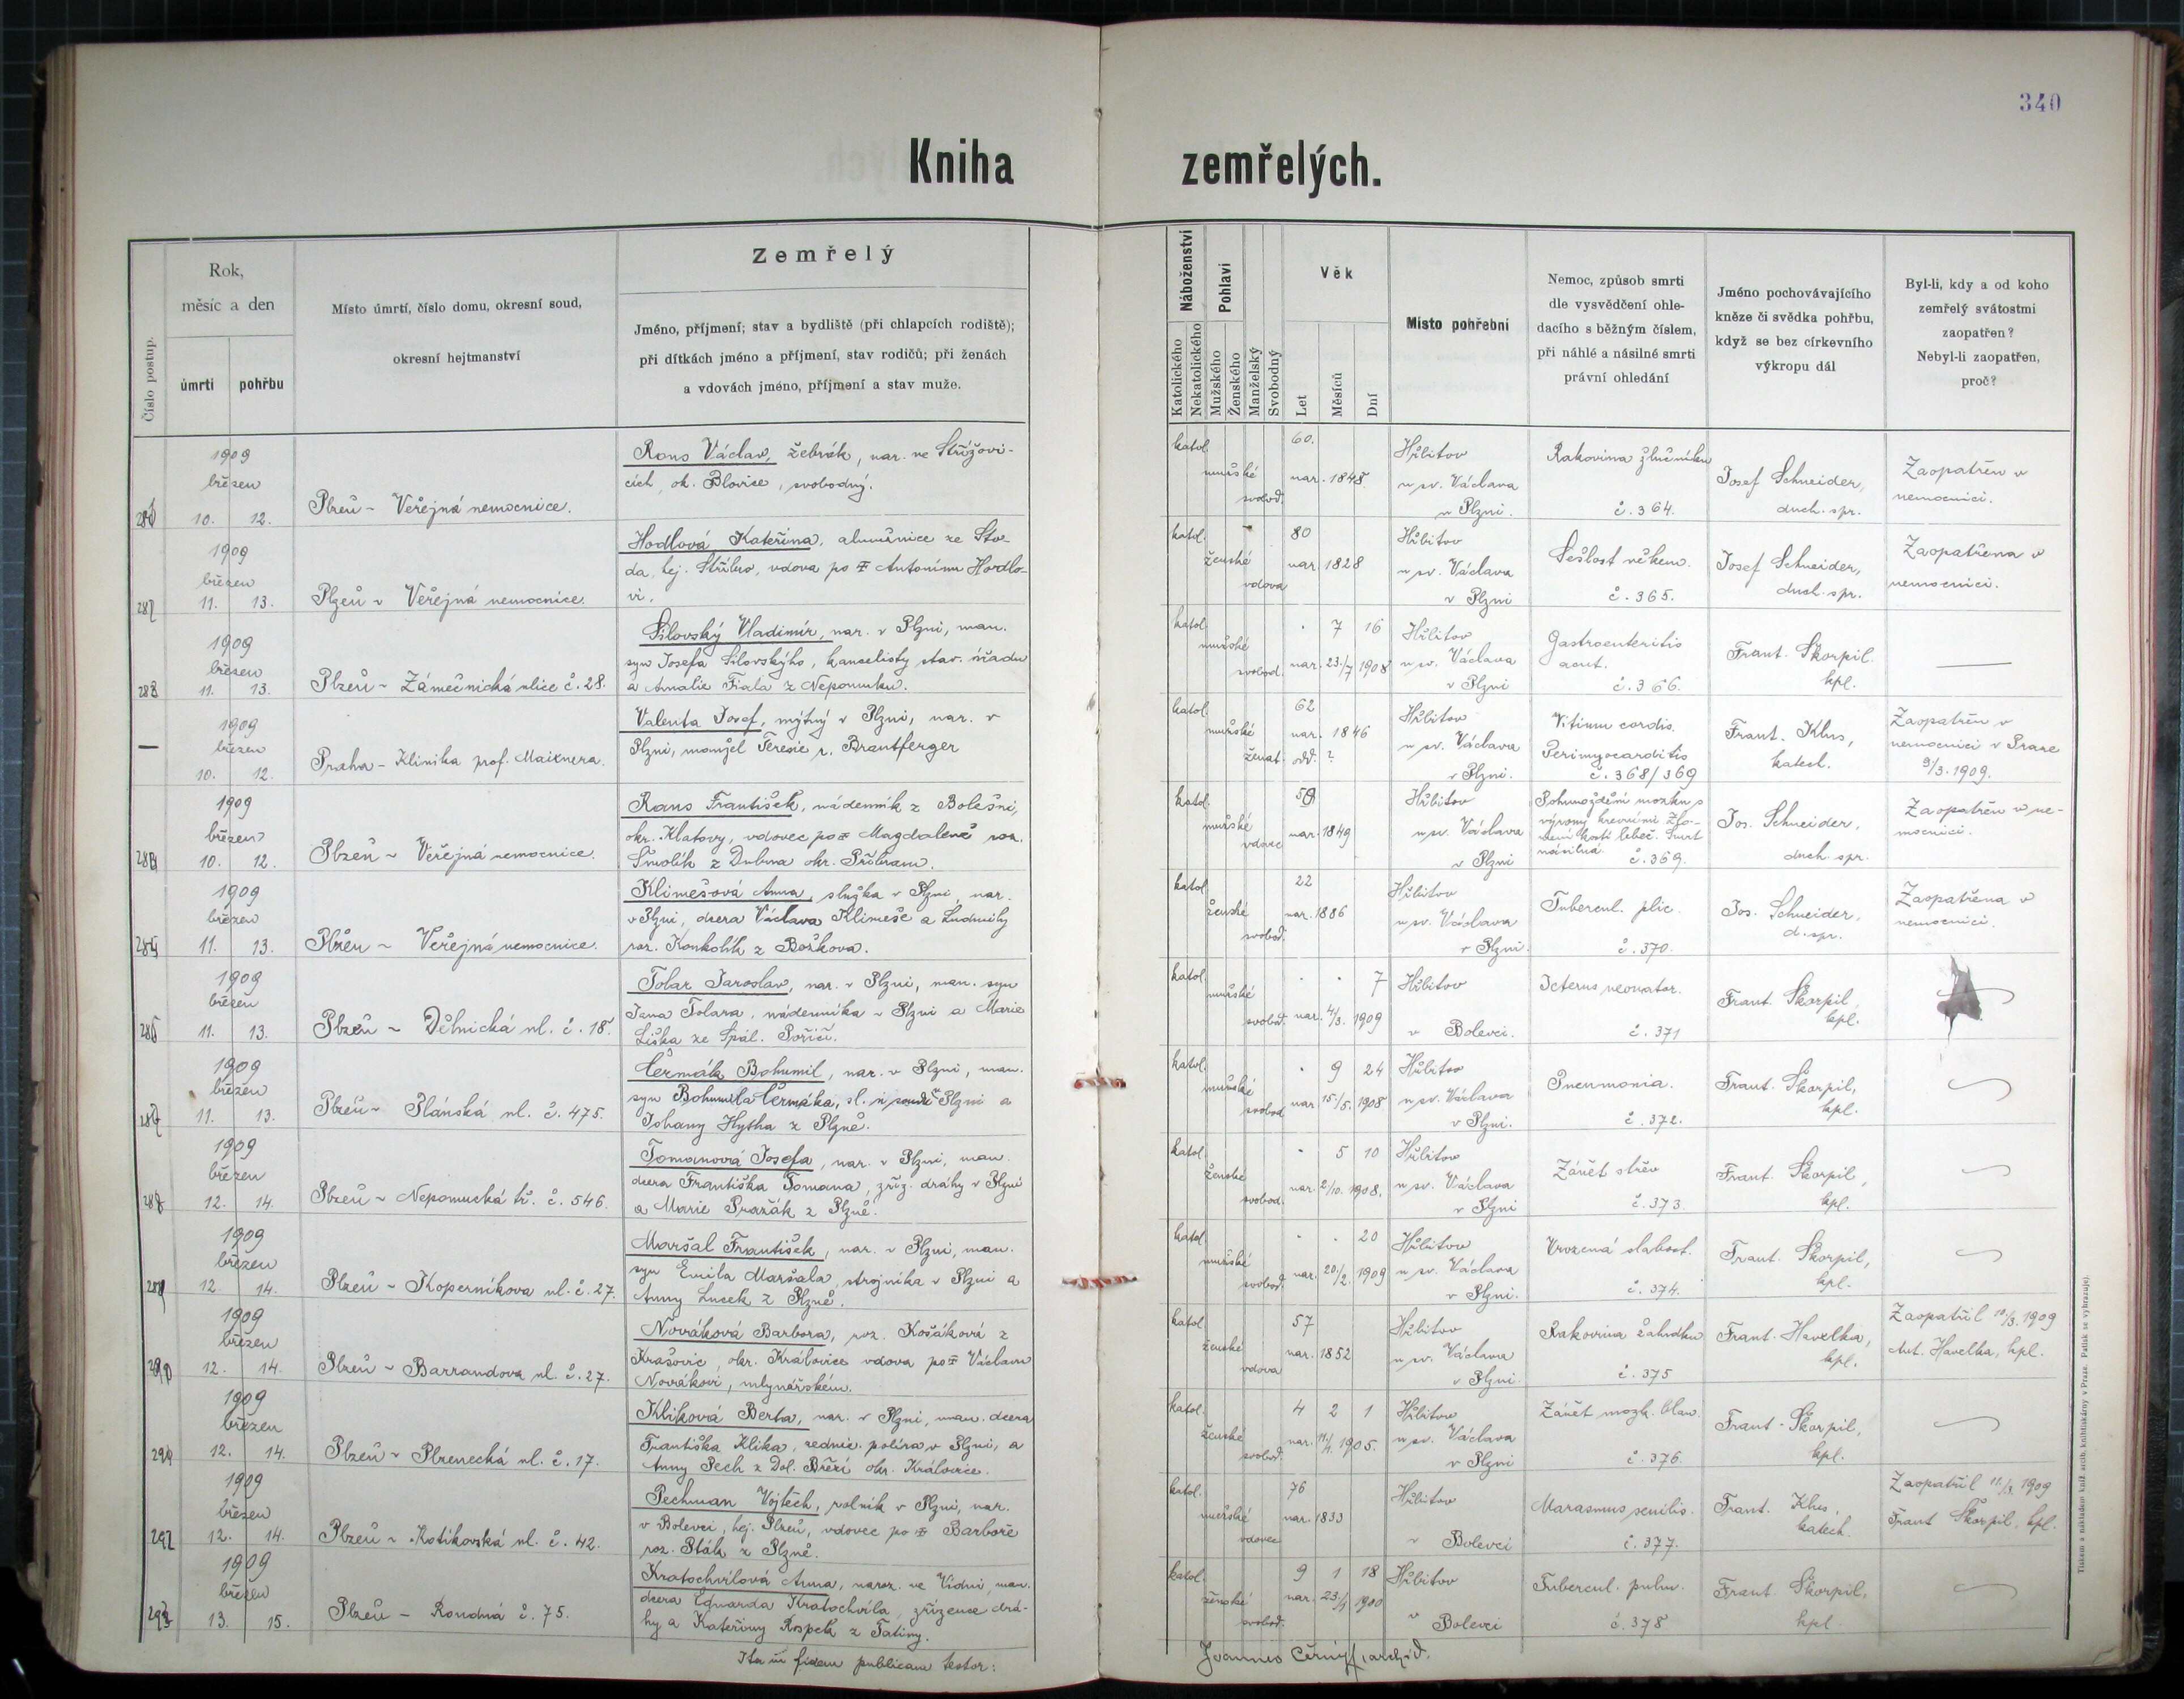 340
Kniha zemřelých.
Číslo postup.
Rok,
měsíc a den
úmrtí
pohřbu
Místo úmrtí, číslo domu, okresní soud,
okresní hejtmanství
Zemřelý
Jméno, příjmení; stav a bydliště (při chlapcích rodiště);
při dítkách jméno a příjmení, stav rodičů; při ženách
a vdovách jméno, příjmení a stav muže.
Náboženství
Katolického
Nekatolického
Pohlaví
Mužského
Ženského
Manželský
Svobodný
Věk
Let
Měsíců
Dní
Místo pohřební
Nemoc, způsob smrti
dle vysvědčení ohle-
dacího s běžným číslem,
při náhlé a násilné smrti
právní ohledání
Jméno pochovávajícího
kněze či svědka pohřbu,
když se bez církevního
výkropu dál
Byl-li, kdy a od koho
zemřelý svátostmi
zaopatřen?
Nebyl-li zaopatřen,
proč?
1909
březen
10. 12.
Plzeň - Veřejná nemocnice.
Rons Václav, žebrák, nar. ve Střížovi-
cích, ok. Blovice, svobodný.
katol.
mužské
svobod.
60.
nar. 1848.
Hřbitov
u sv. Václava
v Plzni.
Rakovina žlučníku
č. 364.
Josef Schneider,
duch. spr.
Zaopatřen v
nemocnici.
1909
březen
11. 13.
Plzeň - Veřejná nemocnice.
Hodlová Kateřina, almužnice ze Sto-
da, hej. Stříbro, vdova po Antonínu Hordlo-
vi.
katol.
ženské
vdova
80
nar. 1828
Hřbitov
u sv. Václava
v Plzni
Sešlost věkem.
č. 365.
Josef Schneider,
duch. spr.
Zaopatřena v
nemocnici.
1909
březen
11. 13.
Plzeň - Zámečnická ulice č. 28.
Silovský Vladimír, nar. v Plzni, man.
syn Josefa Silovskýho, kancelisty stav. úřadu
a Amalie Fiala z Nepomuku.
katol.
mužské
svobod.
7 16
nar. 23./7 1908
Hřbitov
u sv. Václava
v Plzni
Gastroenteritis
acut.
č. 366.
Frant. Škorpil.
kpl.
—
1909
březen
10. 12.
Praha - Klinika prof. Maixnera.
Valenta Josef, mýtný v Plzni, nar. v
Plzni, manžel Terezie r. Brantferger
katol.
mužské
ženat.
62
nar. 1846
odd. ?
Hřbitov
u sv. Václava
v Plzni.
Vitium cordis.
Perimyocarditis
č. 368/369
Frant. Klus,
katech.
Zaopatřen v
nemocnici v Praze
9/3. 1909.
1909
březen
10. 12.
Plzeň - Veřejná nemocnice.
Rans František, nádenník z Bolešin,
okr. Klatovy, vdovec po Magdaleně roz.
Smolík z Dubna okr. Příbram.
katol.
mužské
vdovec
nar. 1849
Hřbitov
u sv. Václava
v Plzni
Pohmoždění mozku s
výrony krevními Zlo-
mení kosti lebeč. Smrt
násilná. č. 369.
Jos. Schneider,
duch. spr.
Zaopatřen v ne-
mocnici.
1909
březen
11. 13.
Plzeň - Veřejná nemocnice.
Klimešová Anna, služka v Plzni nar.
v Plzni, dcera Václava Klimeše a Ludmily
roz. Konkolík z Božkova.
katol.
ženské
svobod.
22
nar. 1886
Hřbitov
u sv. Václava
v Plzni.
Tubercul. plic.
č. 370.
Jos. Schneider,
d. spr.
Zaopatřena v
nemocnici.
1909
březen
11. 13.
Plzeň - Dělnická ul. č. 18.
Tolar Jaroslav, nar. v Plzni, man. syn
Jana Tolara, nádenníka v Plzni a Marie
Liška ze Spál. Poříčí.
katol.
mužské
svobod.
7
nar. 4/3. 1909
Hřbitov
v Bolevci.
Icterus neonator.
č. 371
Frant. Škorpil,
kpl.
1909
březen
11. 13.
Plzeň - Plánská ul. č. 475.
Čermák Bohumil, nar. v Plzni, man.
syn Bohumila Čermáka, sl. u soudu v Plzni a
Johany Hytha z Plzně.
katol.
mužské
svobod.
9 24
nar. 15./5. 1908
Hřbitov
u sv. Václava
v Plzni.
Pneumonia.
č. 372.
Frant. Škorpil,
kpl.
1909
březen
12. 14.
Plzeň - Nepomucká tř. č. 546.
Tomanová Josefa, nar. v Plzni, man.
dcera Františka Tomana, zříz. dráhy v Plzni
a Marie Pražák z Plzně.
katol.
ženské
svobod.
5 10
nar. 2/10. 1908.
Hřbitov
u sv. Václava
v Plzni
Zánět střev
č. 373.
Frant. Škorpil,
kpl.
1909
březen
12. 14.
Plzeň - Koperníkova ul. č. 27.
Maršal František, nar. v Plzni, man.
syn Emila Maršala, strojníka v Plzni a
Anny Lucek z Plzně.
katol.
mužské
svobod.
20
nar. 20./2. 1909
Hřbitov
u sv. Václava
v Plzni.
Vrozená slabost.
č. 374.
Frant. Škorpil,
kpl.
1909
březen
12. 14.
Plzeň - Barrandova ul. č. 27.
Nováková Barbora, roz. Košáková z
Krašovic, okr. Královice vdova po Václavu
Novákovi, mlynářském.
katol.
ženské
vdova
57
nar. 1852
Hřbitov
u sv. Václava
v Plzni.
Rakovina žaludku
č. 375
Frant. Havelka,
kpl.
Zaopatřil 10./3. 1909
Ant. Havelka, kpl.
1909
březen
12. 14.
Plzeň - Plzenecká ul. č. 17.
Kliková Berta, nar. v Plzni, man. dcera
Františka Klika, zednic. políra v Plzni, a
Anny Pech z Dol. Bříží okr. Královice.
katol.
ženské
svobod.
4 2 1
nar. 11./1. 1905.
Hřbitov
u sv. Václava
v Plzni
Zánět mozk. blan.
č. 376.
Frant. Škorpil,
kpl.
1909
březen
12. 14.
Plzeň - Kotikovská ul. č. 42.
Pechman Vojtěch, rolník v Plzni, nar.
v Bolevci, hej. Plzeň, vdovec po Barboře
roz. Pták z Plzně.
katol.
mužské
vdovec
76
nar. 1833
Hřbitov
v Bolevci
Marasmus senilis.
č. 377.
Frant. Klus,
katech.
Zaopatřil 11./3. 1909
Frant Škorpil, kpl.
1909
březen
13. 15.
Plzeň - Rondná č. 75.
Kratochvílová Anna, naroz. ve Vídni, man.
dcera Eduarda Kratochvíla, zřízence drá-
hy a Kateřiny Rospek z Tatiny.
katol.
ženské
svobod.
9 1 18
nar. 23./1 1900
Hřbitov
v Bolevci
Tubercul. pulm.
č. 378
Frant Škorpil,
kpl.
Ita in fidem publicam testor:
Joannes Černý, archid.
Tiskem a nákladem kníž. arcib. knihtiskárny v Praze. Patisk se vyhrazuje.